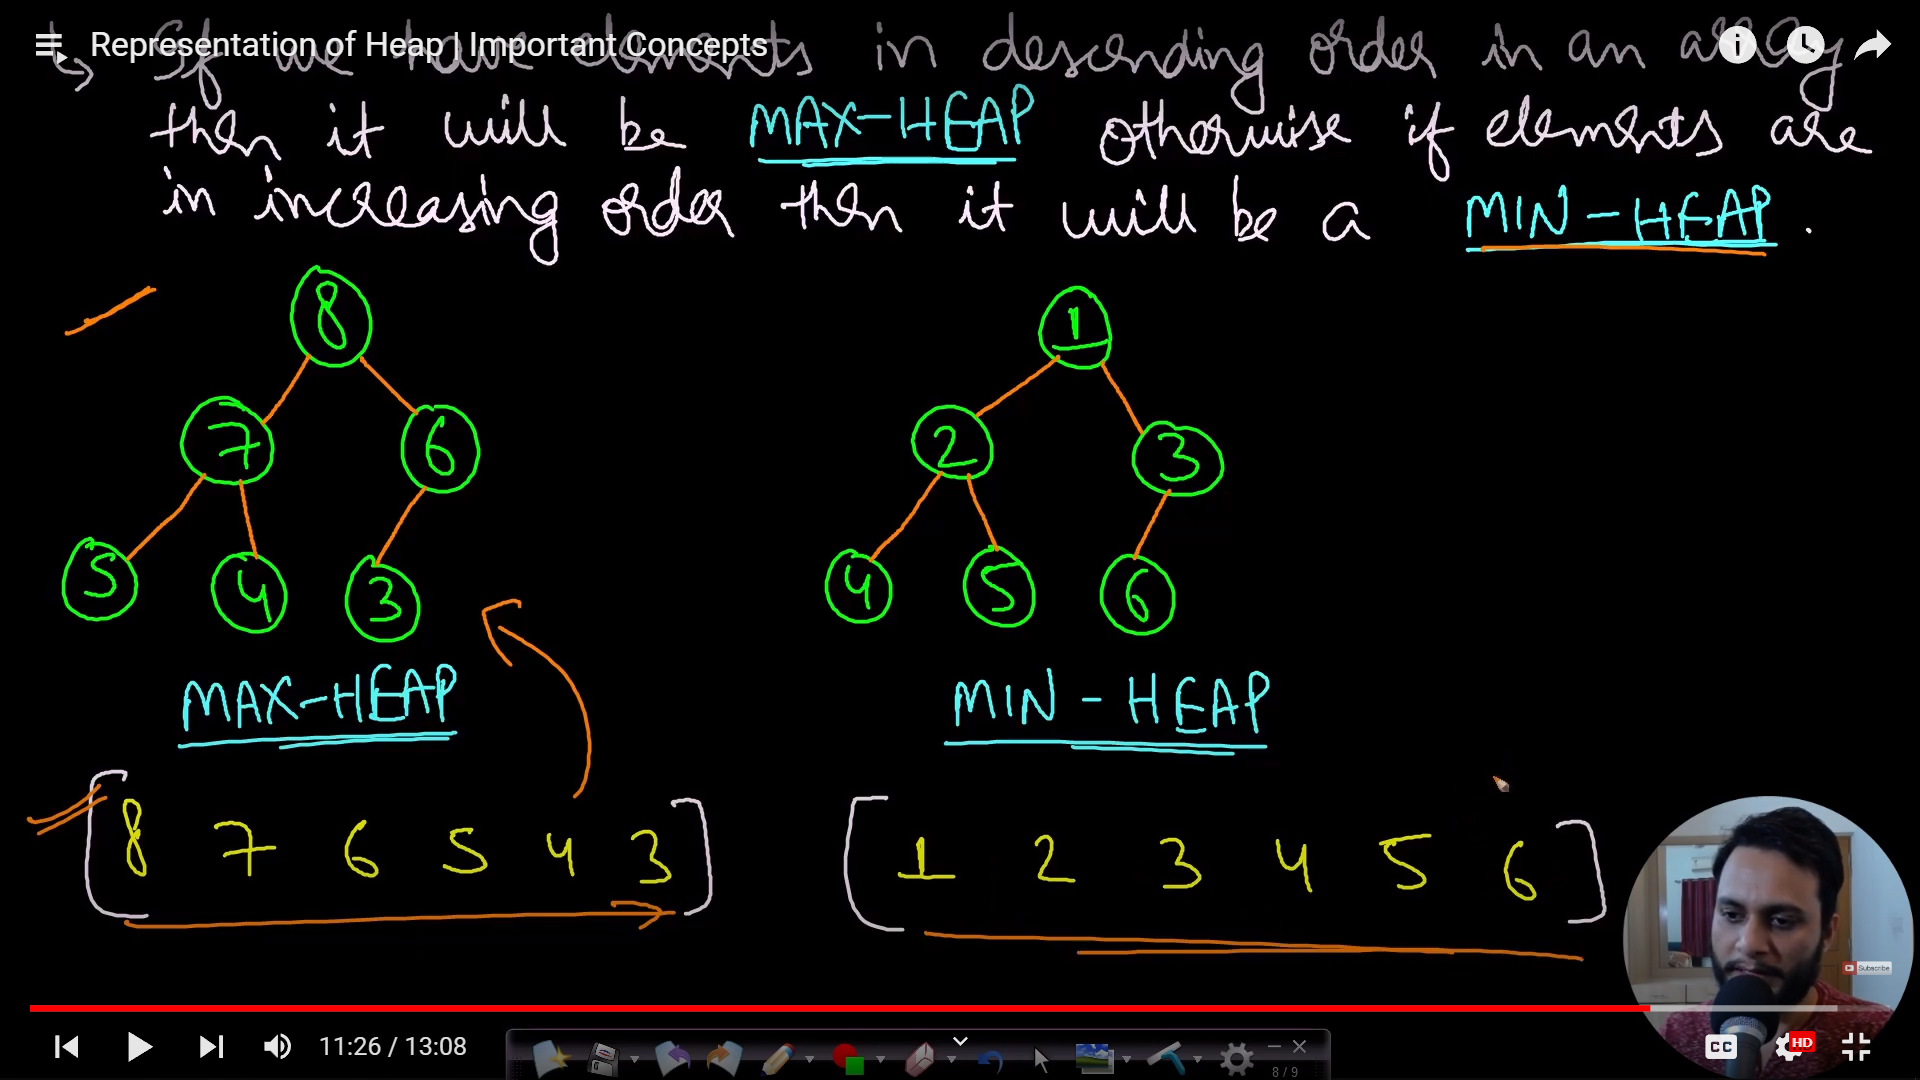 Representation of Heap | Important Concepts
If we have elements in descending order in an array
then it will be MAX-HEAP otherwise if elements are
in increasing order then it will be a MIN-HEAP.
8
7 6
5 4 3
MAX-HEAP
[8 7 6 5 4 3]
1
2 3
4 5 6
MIN-HEAP
[1 2 3 4 5 6]
Subscribe
11:26 / 13:08
8/9
CC HD